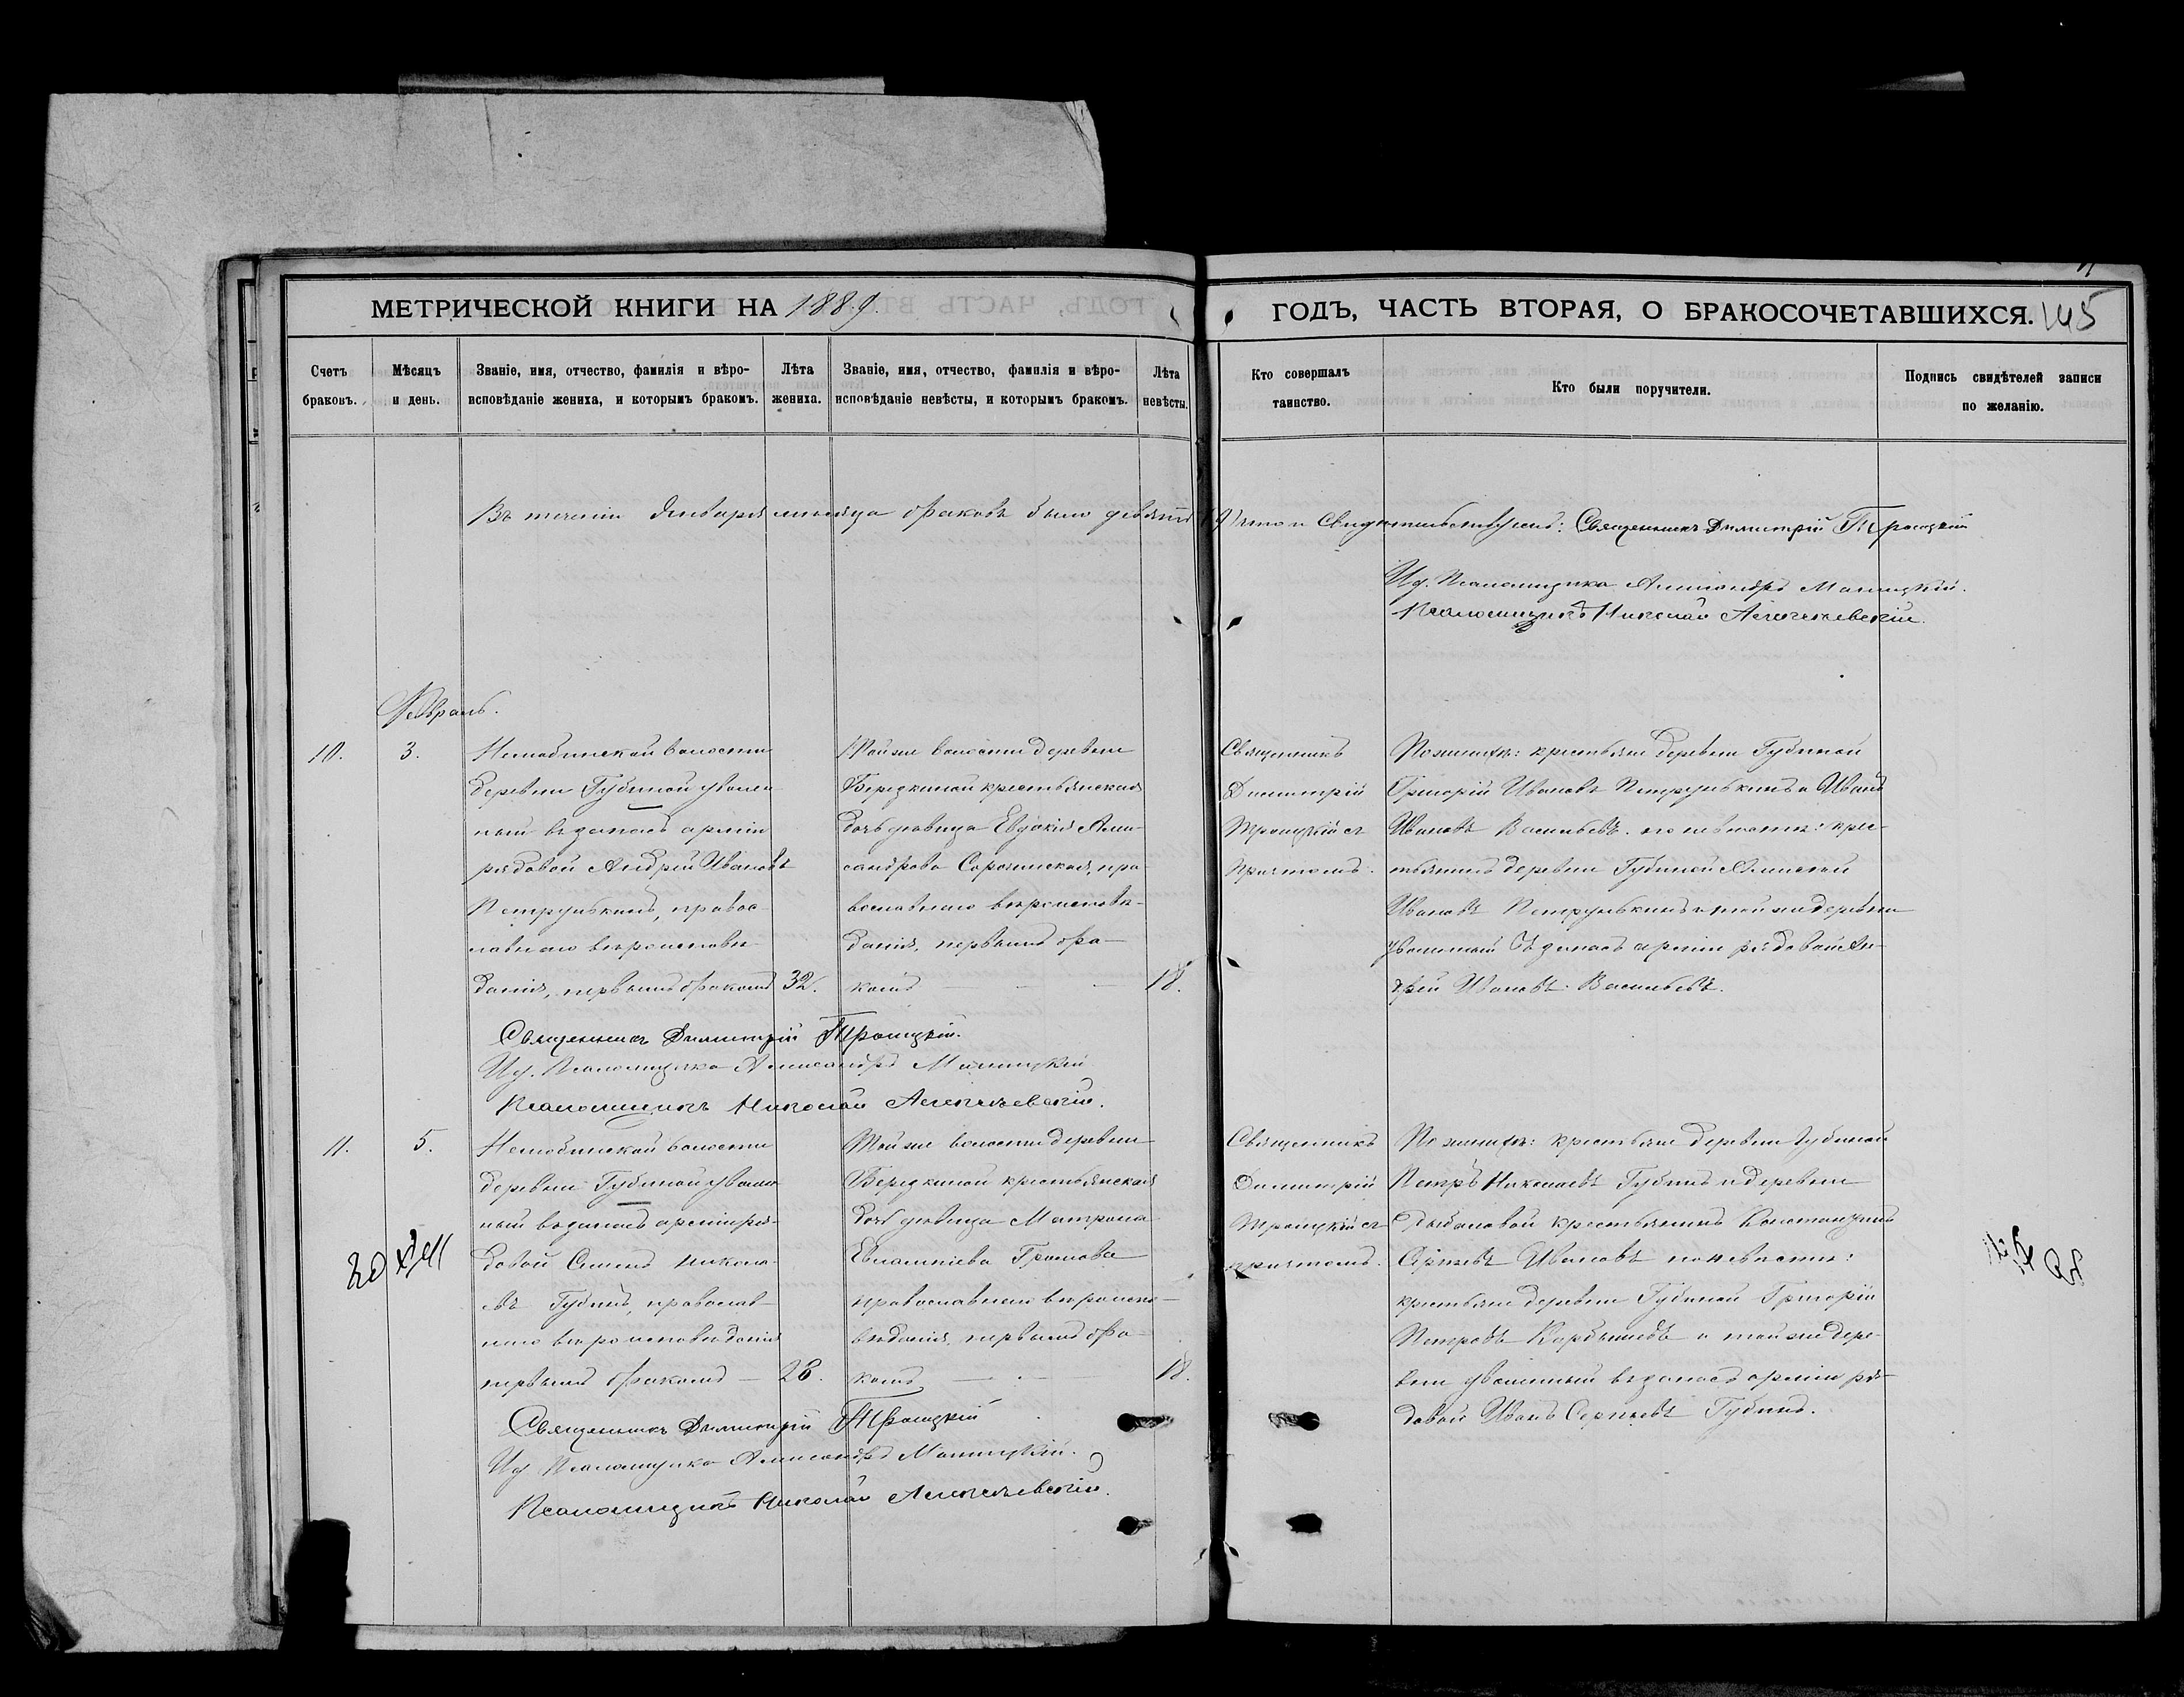 МЕТРИЧЕСКОЙ КНИГИ НА 1889.
ГОДЪ, ЧАСТЬ ВТОРАЯ, О БРАКОСОЧЕТАВШИХСЯ. 145
Счетъ
браковъ.
Мѣсяцъ
и день.
Званіе, имя, отчество, фамилія и вѣро-
исповѣданіе жениха, и которымъ бракомъ.
Лѣта
жениха.
Званіе, имя, отчество, фамилія и вѣро-
исповѣданіе невѣсты, и которымъ бракомъ.
Лѣта
невѣсты.
Кто совершалъ
таинство.
Кто были поручители.
Подпись свидѣтелей записи
по желанію.
Въ теченіи Января мѣсяца браковъ было девять
Что и свидѣтельствуемъ: Священникъ Димитрій Троицкій
Ид. Псаломщика Александръ
Псаломщикъ Николай
Февраль.
10.
3.
волости
деревни Губиной уволен-
ный въ запасъ арміи
рядовой Андрей Ивановъ
Петрунькинъ, правос-
лавнаго вѣроисповѣ-
данія, первымъ бракомъ
32.
Той же волости деревни
Бередкиной крестьянская
дочь девица Евдокія Алек-
сандрова Сорочинская, пра-
вославнаго вѣроисповѣ-
данія, первымъ бра-
комъ
18.
Священникъ
Димитрій
Троицкій съ
причтомъ.
По женихѣ: крестьяне деревни Губиной
Григорій Ивановъ Петрунькинъ и Иванъ
Ивановъ Васильевъ. по невѣстѣ: крес-
тьянинъ деревни Губиной Алексѣй
Ивановъ Петрунькинъ и той же деревни
уволенный въ запасъ арміи рядовой Ан-
дрей Ивановъ Васильевъ.
Священникъ Димитрій Троицкій.
Ид. Псаломщика Александръ
Псаломщикъ Николай
11.
5.
волости
деревни Губиной уволен-
ный въ запасъ арміи ря-
довой Семенъ Никола-
евъ Губинъ, православ-
наго вѣроисповѣданія
первымъ бракомъ
28.
Той же волости деревни
Бередкиной крестьянская
дочь девица Матрона
Евлампіева Громова
православнаго вѣроиспо-
вѣданія, первымъ бра-
комъ
18.
Священникъ
Димитрій
Троицкій съ
причтомъ.
По женихѣ: крестьяне деревни Губиной
Петръ Николаевъ Губинъ и деревни
крестьянинъ Константинъ
Сергѣевъ Ивановъ по невѣстѣ:
крестьяне деревни Губиной Григорій
Петровъ и той же дере-
вни уволенный въ запасъ арміи ря-
довой Иванъ Сергѣевъ Губинъ.
Священникъ Димитрій Троицкій
Ид. Псаломщика Александръ
Псаломщикъ Николай